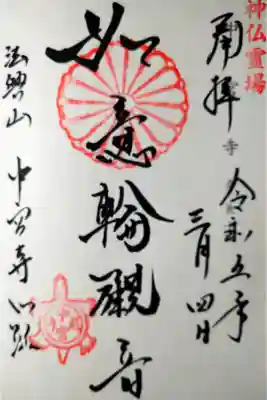 神仏霊場
奉拝
令和五年
三月四日
如意輪観音
法興山 中宮寺門跡